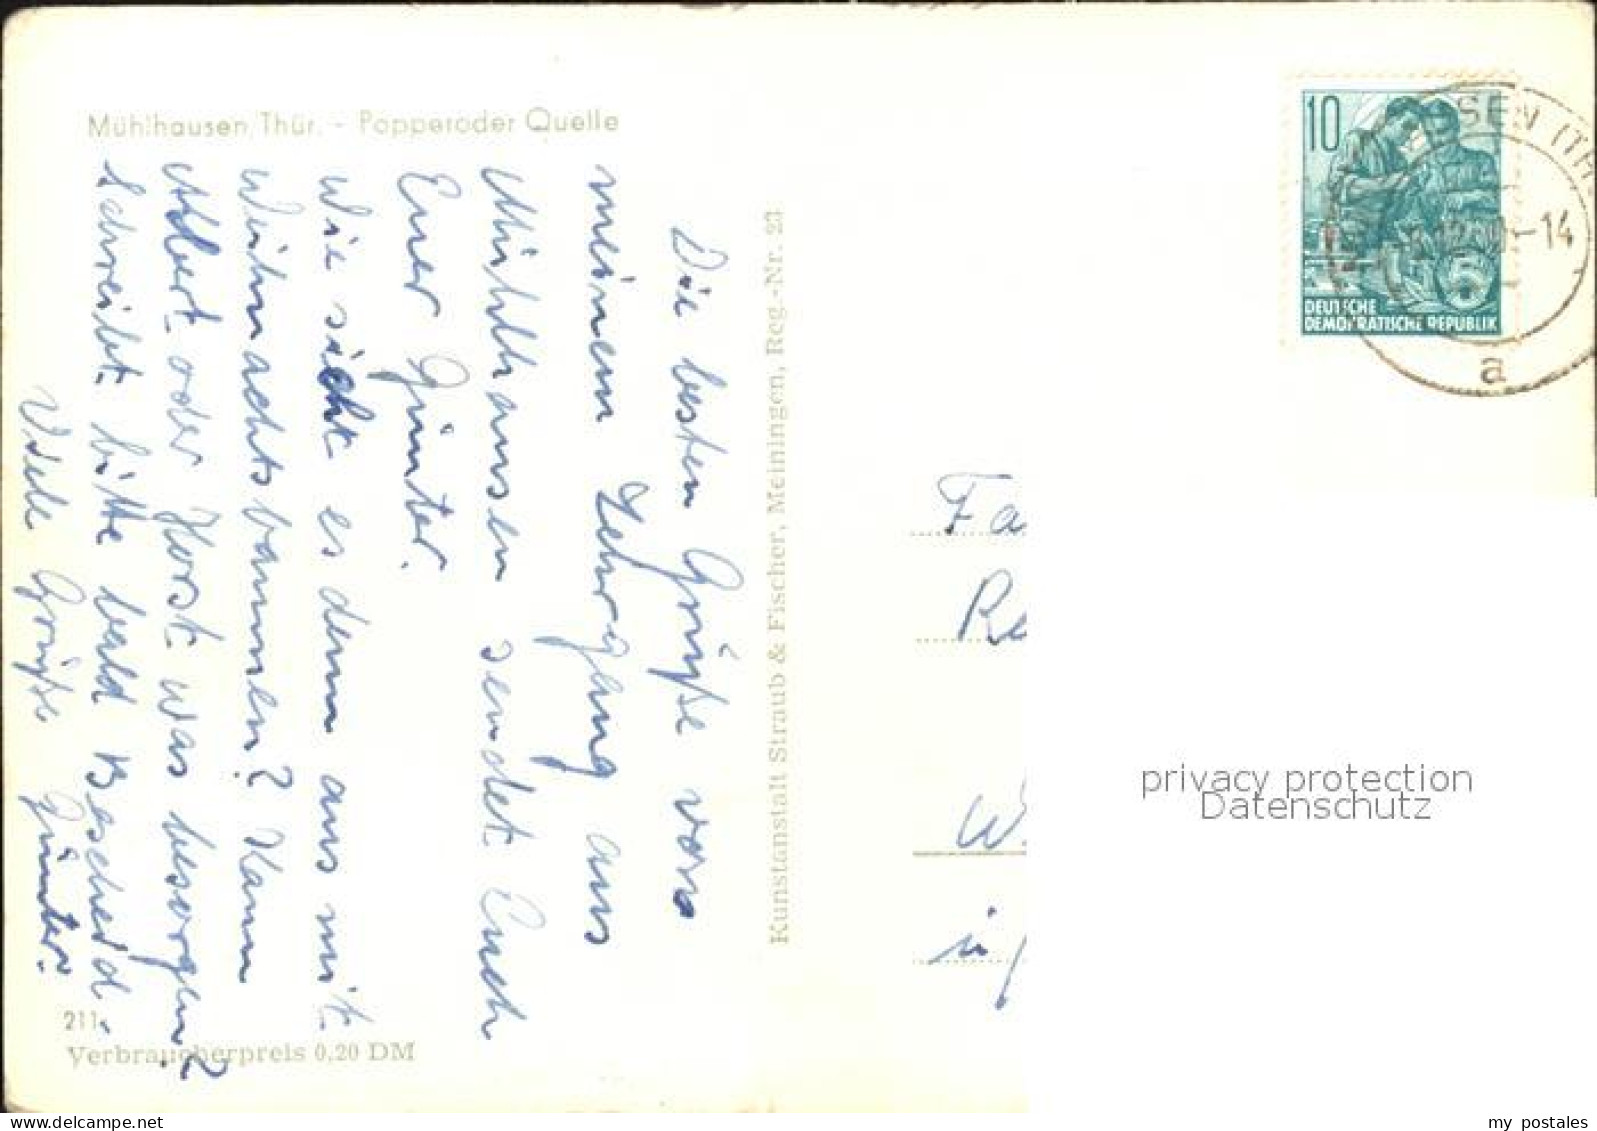 Mühlhausen/Thür. - Popperoder Quelle
Die besten Grüße vom
meinem Lehrgang aus
Mühlhausen sendet Euch
Euer Günter.
Wie sieht es denn aus mit
Weihnachtsbaumen? Kann
Albert oder Horst was besorgen?
Schreibt bitte bald Bescheid.
Viele Grüße Günter.
211
Verbraucherpreis 0,20 DM
Kunstanstalt Straub & Fischer, Meiningen, Reg.-Nr. 23
10
DEUTSCHE
DEMOKRATISCHE REPUBLIK
SEN (TH
-14
a
Fa
Re
W
privacy protection
Datenschutz
my postales